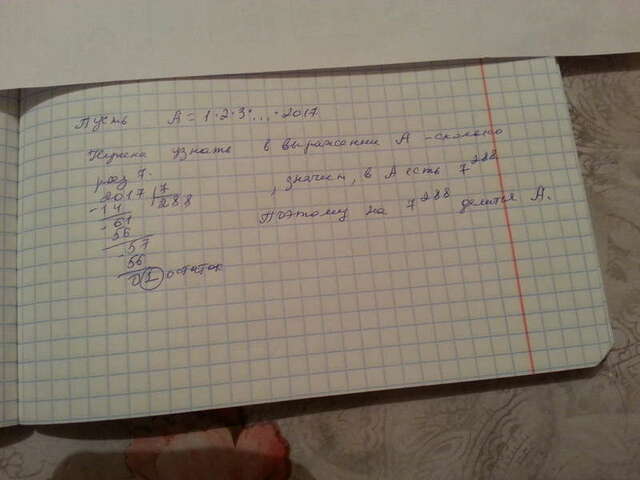 Пусть A = 1·2·3·...·2017
Нужно узнать в выражении A - сколько
раз 7.
2017 | 7
-14 288 , значит, в A есть 7^288
-61 Поэтому на 7^288 делится A.
56
-57
56
01 остаток